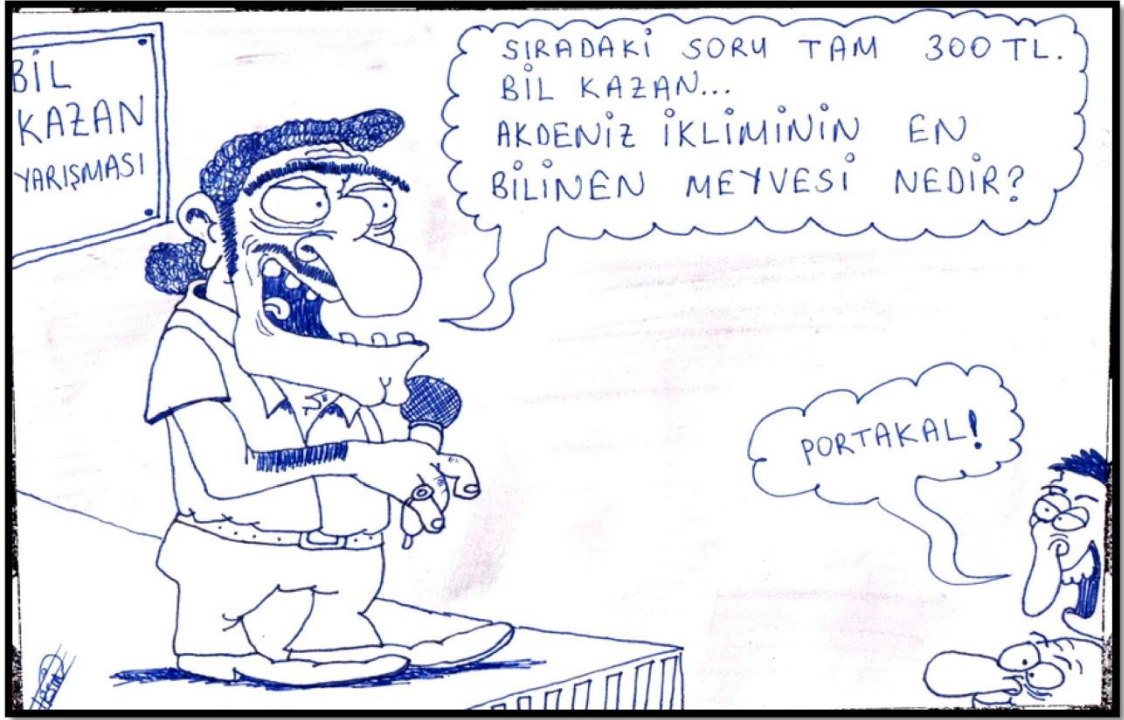 BİL
KAZAN
YARIŞMASI
SIRADAKİ SORU TAM 300 TL.
BİL KAZAN...
AKDENİZ İKLİMİNİN EN
BİLİNEN MEYVESİ NEDİR?
PORTAKAL!